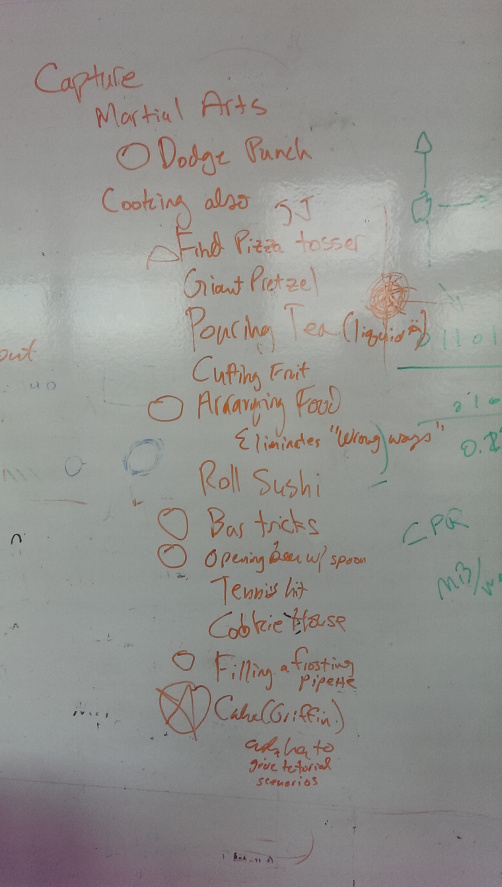 Capture
Martial Arts
Dodge Punch
Cooking also JJ
Find Pizza tosser
Giant Pretzel
Pouring Tea (liquid)
out
Cutting Fruit
Arranging Food
Eliminates "Wrong ways"
Roll Sushi
Bar tricks
Opening beer w/ spoon
Tennis hit
Cookie House
Filling a frosting
pipette
Cake (Griffin)
to
give tutorial
scenarios